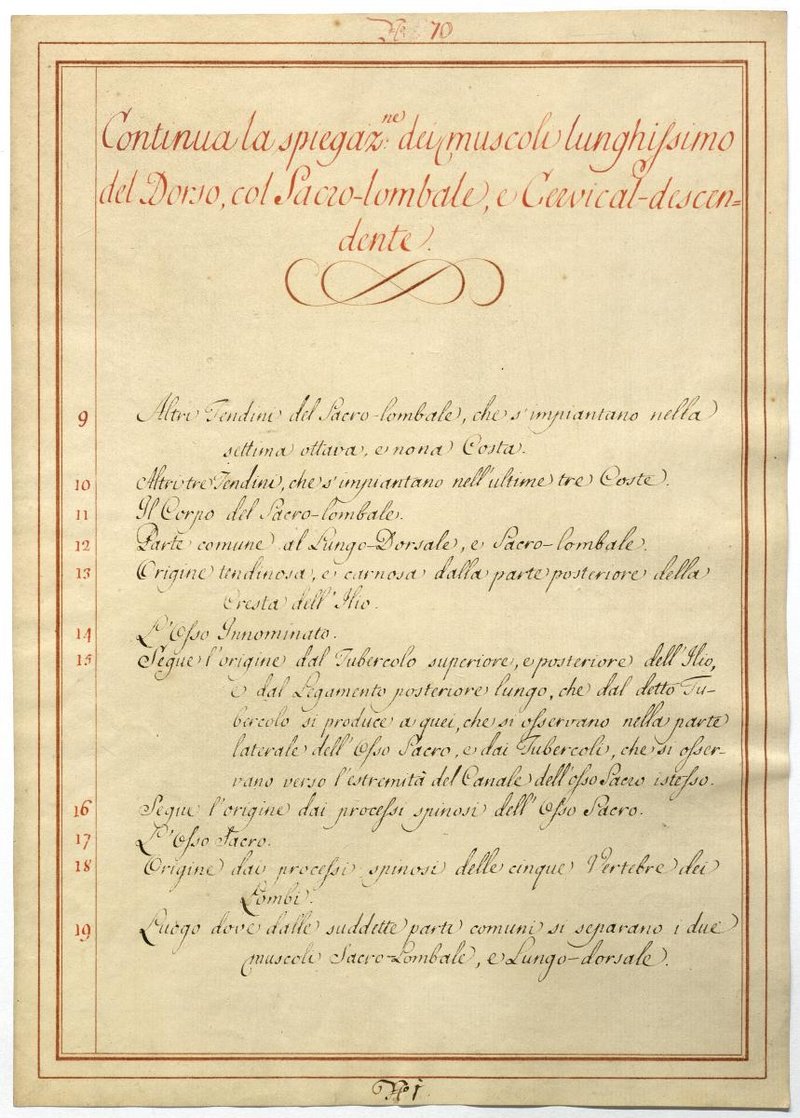 N.º 70
Continua la spiegaz.ne dei muscoli lunghissimo
del Dorso, col Sacro-lombale, e Cervical-descen=
dente.
9 Altri Tendini del Sacro-lombale, che s'impiantano nella
settima ottava, e nona Costa.
10 Altri tre Tendini, che s'impiantano nell'ultime tre Coste.
11 Il Corpo del Sacro-lombale.
12 Parte comune al Lungo-Dorsale, e Sacro-lombale.
13 Origine tendinosa, e carnosa dalla parte posteriore della
Cresta dell'Ilio.
14 L'Osso Innominato.
15 Segue l'origine dal Tubercolo superiore, e posteriore dell'Ilio,
E dal Legamento posteriore lungo, che dal detto Tu-
bercolo si produce a quei, che si osservano nella parte
laterale dell'Osso Sacro, e dai Tubercoli, che si osser-
vano verso l'estremità del Canale dell'osso Sacro istesso.
16 Segue l'origine dai processi spinosi dell'Osso Sacro.
17 L'Osso Sacro.
18 Origine dai processi spinosi delle cinque Vertebre dei
Lombi.
19 Luogo dove dalle suddette parti comuni si separano i due
muscoli Sacro-Lombale, e Lungo-dorsale.
N.º 1